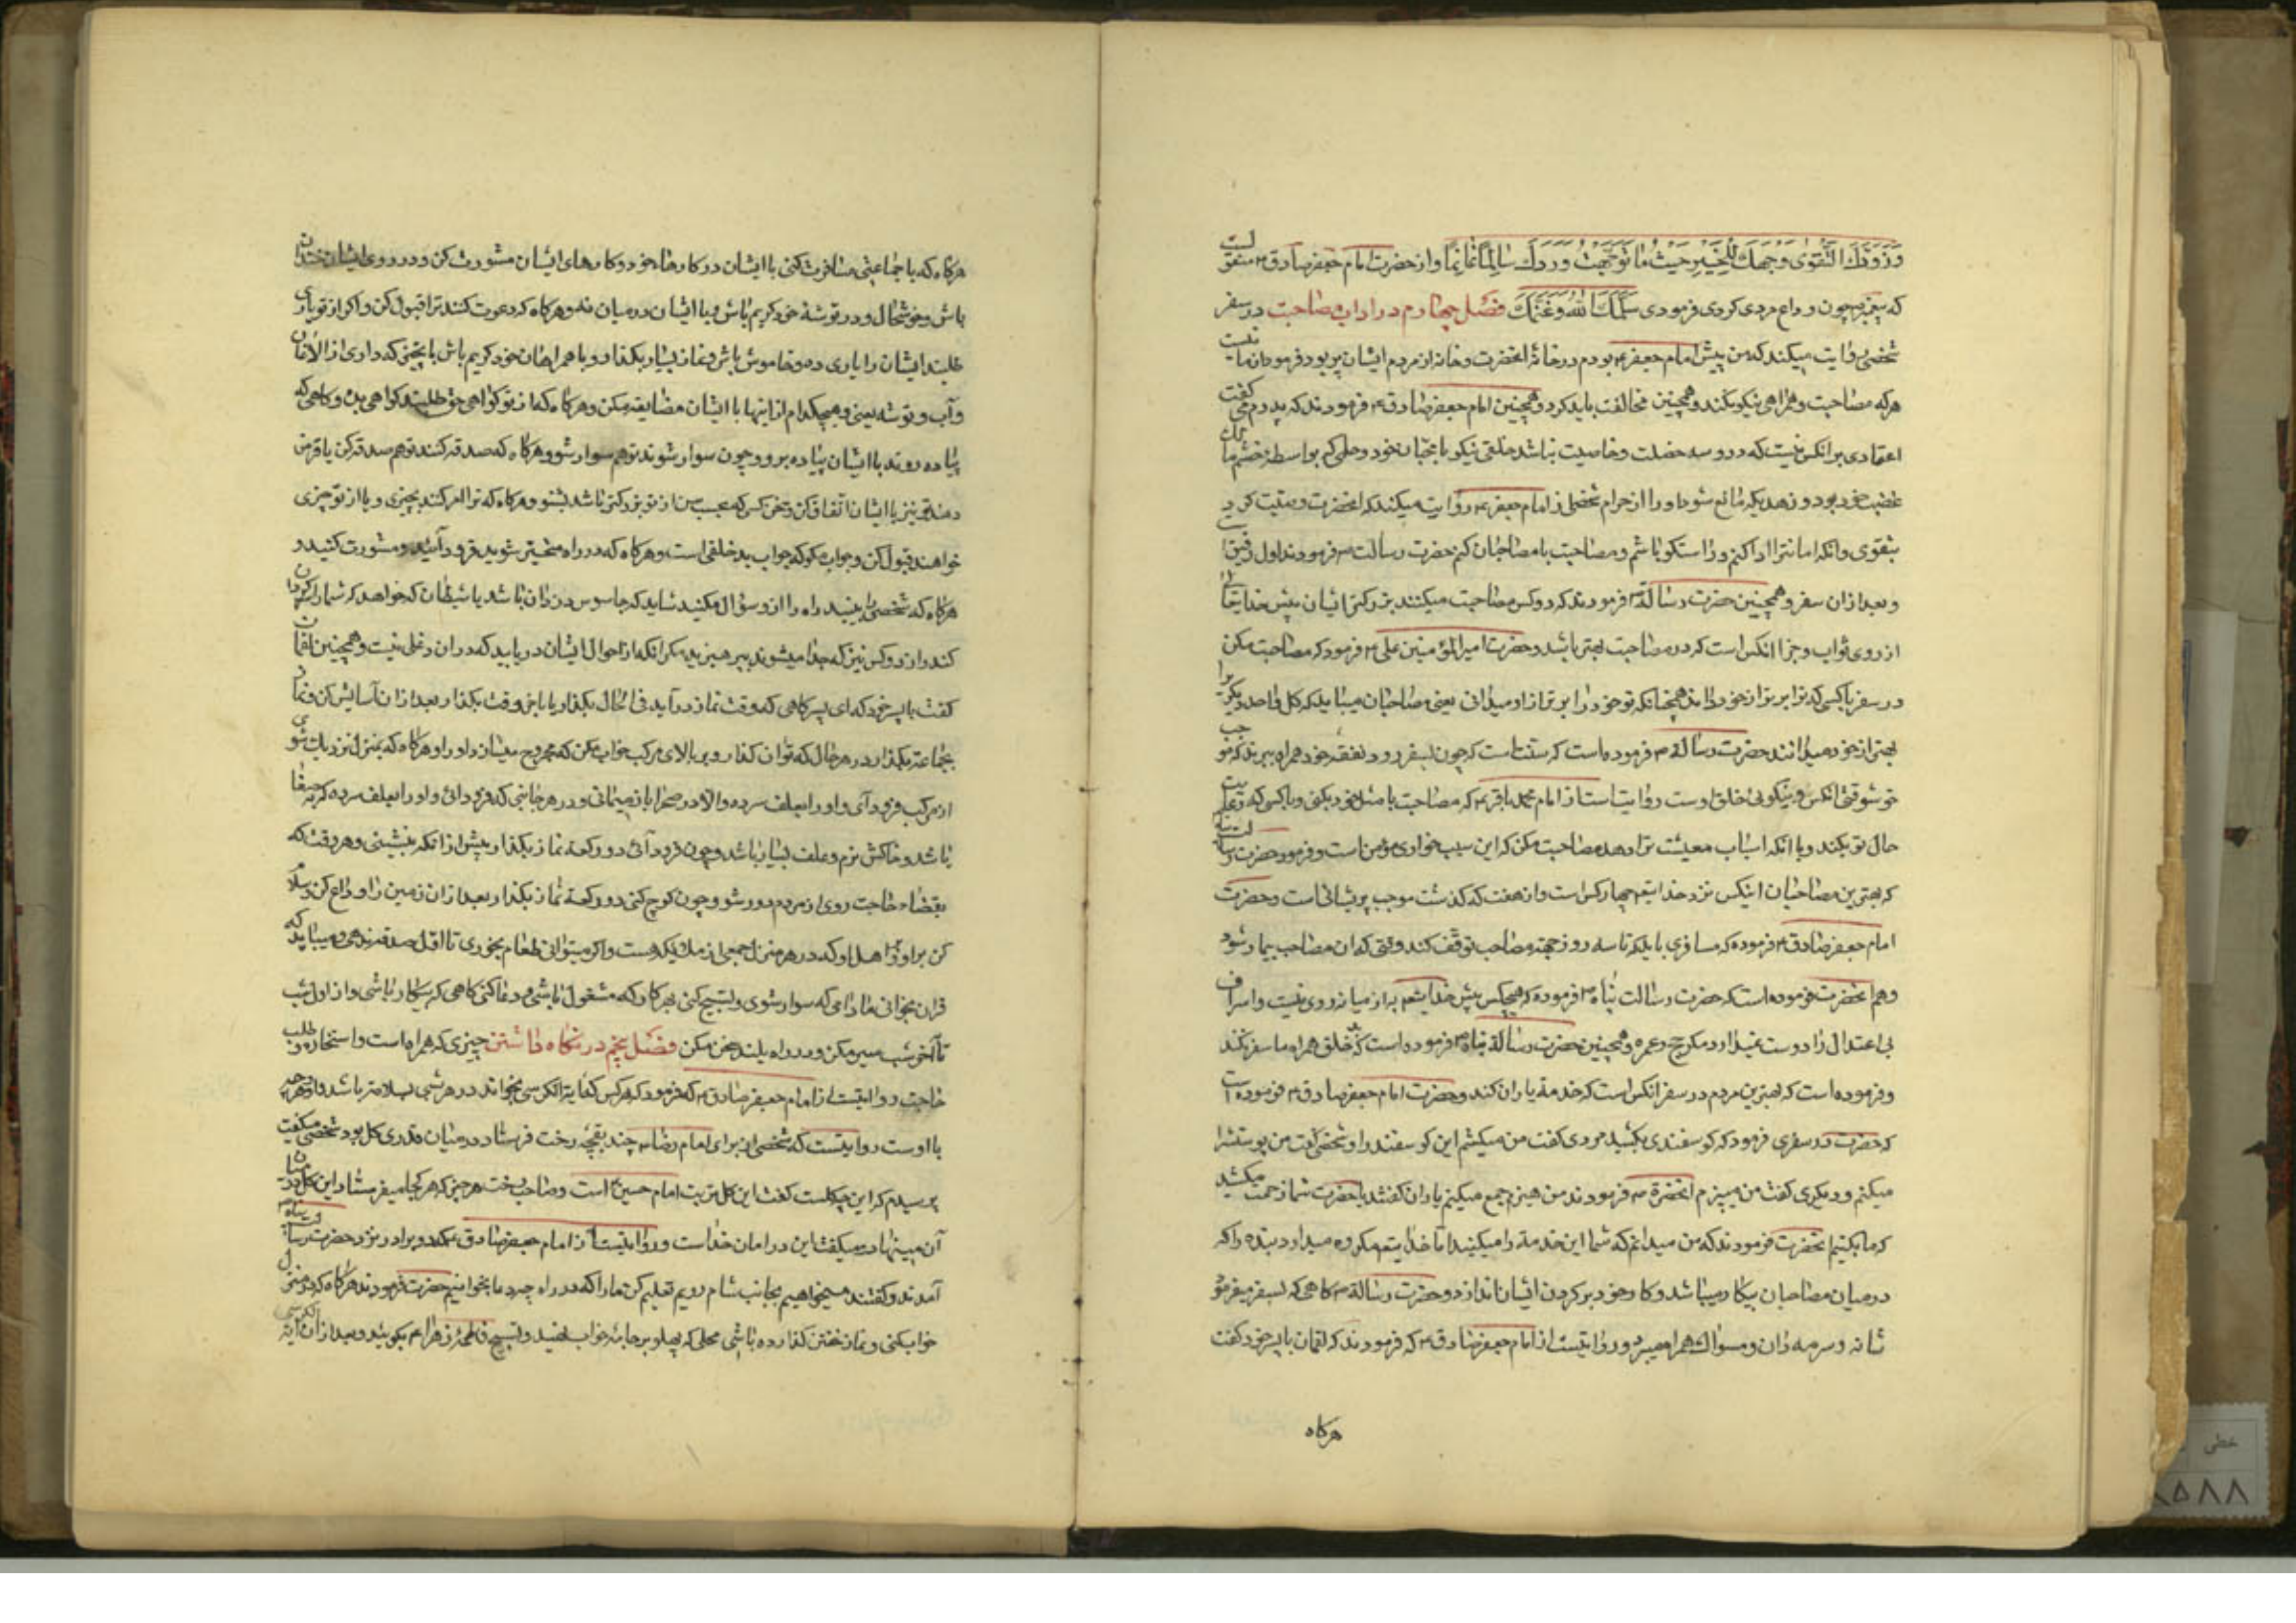 وَزَوَّدَكَ التَّقْوٰى وَوَجَّهَكَ لِلْخَيْرِ حَيْثُ مَا تَوَجَّهْتَ وَرَدَّكَ سَالِمًا غَانِمًا و از حضرت امام جعفر صادق ۴ منقولست
که پیغمبر ۴ چون وداع مردی کردی فرمودی سَلَّمَكَ اللهُ وَغَنَّمَكَ فصل چهارم در اداب مصاحبت در سفر
شخصی روایت میکند که من پیش امام جعفر ۴ بودم در خانهٔ انحضرت و خانه از مردم ایشان پر بود فرمود از ما نیست
هر که مصاحبت و همراهی نیکو نکند و همچنین مخالفت باید کرد و همچنین امام جعفر صادق ۴ فرمودند که پدرم می کفت
اعتمادی بر انکس نیست که درو سه خصلت و خاصیت نباشد خلقی نیکو با محبان خود و حلمی که بواسطه خشم مالک
غضب خود بود و زهدیکه مانع شود او را از حرام شخصی از امام جعفر ۴ روایت میکند که انحضرت وصیت کرد
بتقوی و انکه امانترا ادا کنم و راستکو باشم و مصاحبت با مصاحبان کنم حضرت رسالت ۴ فرمودند اول رفیق
و بعد از ان سفر و همچنین حضرت رسالة ۴ فرمودند که دو کس مصاحبت میکنند بزرکتر ایشان پیش خدایتعالی
از روی ثواب و جزا انکس است که در مصاحبت بهتر باشد و حضرت امیر المؤمنین علی ۴ فرمود که مصاحبت مکن
در سفر با کسی که ترا برتر از خود نداند همچنانکه تو خود را برتر از او میدانی یعنی مصاحبان میباید که کل واحد دیکریرا
بهتر از خود میدانند حضرت رسالة ۴ فرموده است که سنتست که چون بسفر رود نفقه خود همراه ببرند که موجب
خوشوقتی انکس و نیکوئی خلق اوست روایتست از امام محمد باقر ۴ که مصاحبت با مثل خود بکنی و با کسی که رعایت
حال تو بکند و با انکه اسباب معیشت ترا دهد مصاحبت مکن که این سبب خواری مؤمن است و فرمود حضرت رسالت پناه
که بهترین مصاحبان اینکس نزد خدایتعم چهار کس است و از هفت که کذشت موجب پریشانی است و حضرت
امام جعفر صادق ۴ فرموده که مسافری باید که تا سه روز جهة مصاحب توقف کند وقتی که ان مصاحب بیمار شود
و هم انحضرت فرموده است که حضرت رسالت پناه ۴ فرموده که هیچکس پیش خدایتعم به از میانه روی نیست و اسراف
بی اعتدال را دوست نمیدارد مکر حج و عمره و همچنین حضرت رسالة پناه ۴ فرموده است که خلق همراه ما سفر نکند
و فرموده است که بهترین مردم در سفر انکس است که خدمة یاران کند و حضرت امام جعفر صادق ۴ فرموده است
که حضرت در سفری فرمود که کوسفندی بکشید مردی کفت من میکشم این کوسفند را و شخصی کفت من پوستشرا
میکنم و دیکری کفت من میپزم انحضرة ۴ فرمودند من هیزم جمع میکنم یاران کفتند یا حضرت شما زحمت میکشید
که ما بکنیم انحضرت فرمودند که من میدانم که شما این خدمة را میکنید اما خدایتعم مکروه میدارد بنده را که
در میان مصاحبان بیکار میباشد و کار خود بر کردن ایشان اندازد و حضرت رسالة ۴ کاهی که بسفر میفرمود
شانه و سرمه دان و مسواک همراه میبرد و روایتست از امام جعفر صادق ۴ که فرمودند که لقمان با پسر خود کفت
هرکاه
هرکاه که با جماعتی مسافرت کنی با ایشان در کارهاء خود و کارهای ایشان مشورت کن و در روی ایشان خندان
باش و خوشحال و در توشهٔ خود کریم باش و با ایشان در میان نه و هرکاه که دعوت کنند ترا قبول کن و اکر از تو یاری
طلبند ایشان را یاری ده و خاموش باش و نماز بسیار بکذار و با همراهان خود کریم باش بانچنی که داری از الاغان
و آب و توشه یعنی و هیچکدام از اینها با ایشان مضایقه مکن و هرکاه که از تو کواهی حق طلبند کواهی بده و کاهی که
پیاده روند با ایشان پیاده برو و چون سوار شوند تو هم سوار شو و هرکاه که صدقه کنند تو هم صدقه کن یا قرض
دهند تو نیز با ایشان اتفاق کن و سخن کس که بحسب سن از تو بزرکتر باشد بشنو و هرکاه که ترا امر کنند بچیزی و یا از تو چیزی
خواهند قبول کن و جواب مکو که جواب بد خلقی است و هرکاه که در راه متحیر شوید فرود آئید و مشورت کنید و
هرکاه که شخصی را ببینید راه را از و سؤال مکنید شاید که جاسوس دزدان باشد یا شیطان که خواهد که شما را سرکردان
کند و از دو کس نیز که جدا میشوند بپرهیزید مکر انکه از احوال ایشان دریابید که در ان دغلی نیست و همچنین لقمان
کفت با پسر خود که ای پسر کاهی که وقت نماز درآید فی الحال بکذار یا باخر وقت بکذار بعد از ان آسایش کن و نماز
بجماعة بکذار در هر حال که توان کذارد و بر بالای مرکب خواب مکن که مجروح میسازد او را و هرکاه که بمنزل نزدیک شوی
از مرکب فرود آی و او را بعلف سر ده و الا در صحرا بازمیمانی و در هر جانبی که فرود ائی و او را بعلف سر ده که بصفا
باشد و خاکش نرم و علف بسیار باشد و چون فرود آئی دو رکعة نماز بکذار پیش از انکه بنشینی و هر وقت که
بقضاء حاجت روی از مردم دور شو و چون کوچ کنی دو رکعة نماز بکذار بعد از ان زمین را وداع کن و سلام
کن بر او و اهل او که در هر منزل جمعی از ملایکه هست و اکر میتوانی طعام نخوری تا اقل صدقه ندهی و میباید که
قران بخوانی مادامی که سوار شوی و تسبیح کنی بهر کار که مشغول باشی و دعا کنی کاهی که بیکار باشی و از اول شب
تا آخر شب سیر مکن و در راه بلند سخن مکن فصل پنجم در نکاه داشتن چیزی که همراه است و استخاره و طلب
حاجت روایتست از امام جعفر صادق ۴ که فرمود که هر کس که آیة الکرسی بخواند در هر شبی بسلامتر باشد و هر چه
با اوست روایتست که شخصی از برای امام رضا ۴ چند بقچه رخت فرستاد در میان قدری کل بود شخصی میکفت
پرسیدم که این چکلست کفت این کل تربت امام حسین ۴ است و صاحب رخت هر چیز که هر کجا میفرستاد این کل در میان
آن مینهاد و میکفت این در امان خداست و روایتست از امام جعفر صادق ۴ که دو برادر نزد حضرت رسالت پناه ۴
آمدند و کفتند میخواهیم بجانب شام رویم تعلیم کن ما را که در راه چه دعا بخوانیم حضرت فرمودند هرکاه که در منزل
خواب کنی و نماز خفتن کذارده باشی محلی که پهلو بر جامهٔ خواب نهید و تسبیح فاطمهٔ زهرا ۴ بکوئید و بعد از ان آیة الکرسی